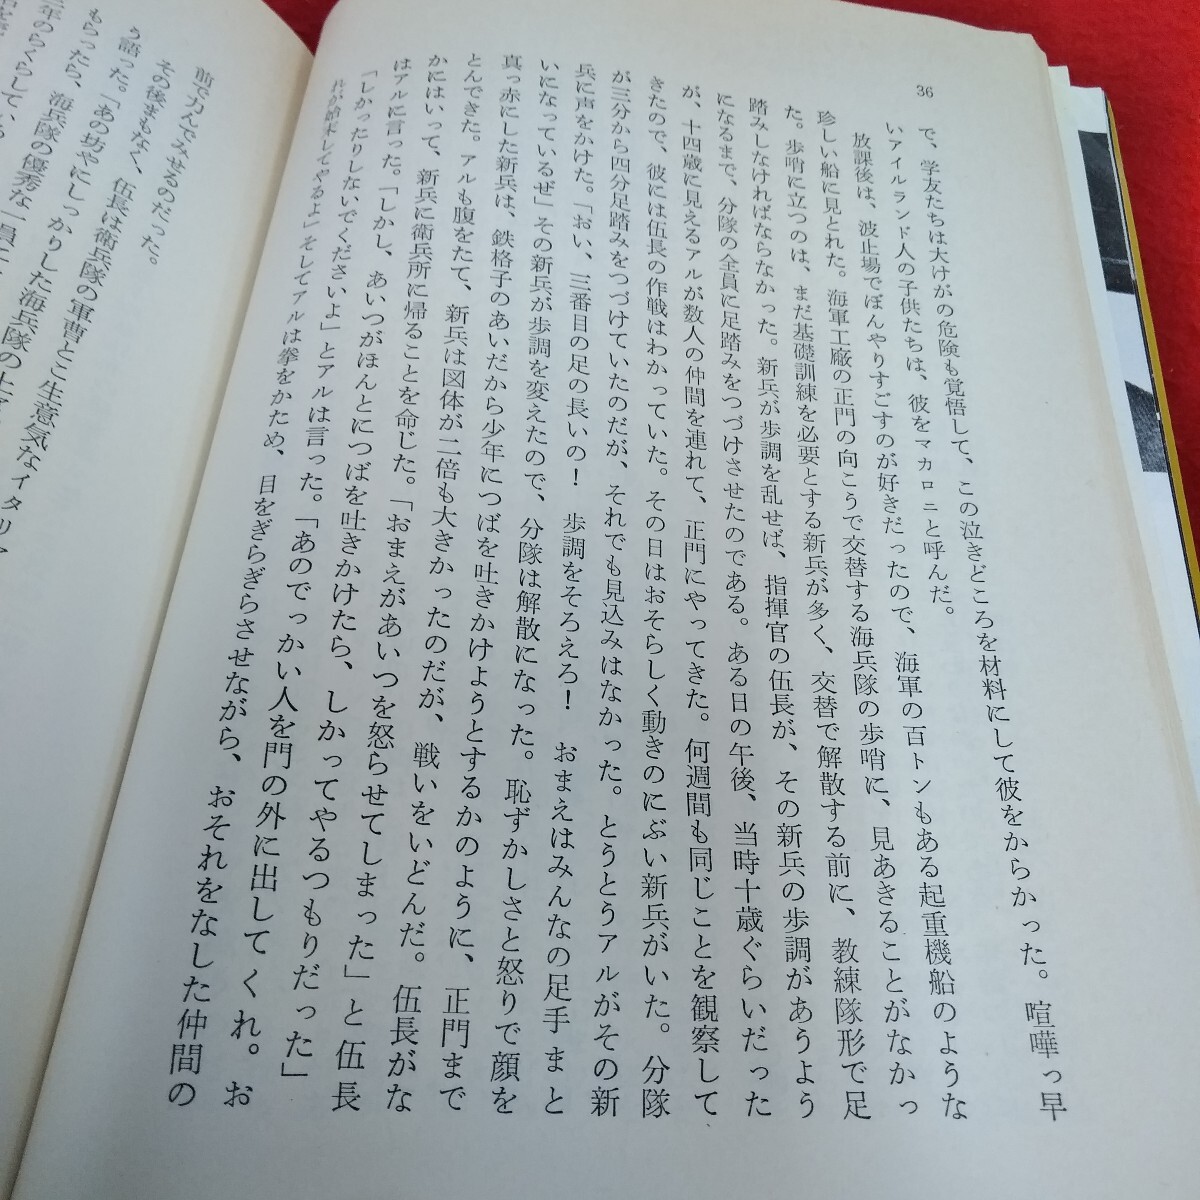 36
で、学友たちは大けがの危険も覚悟して、この泣きどころを材料にして彼をからかった。喧嘩っ早
いアイルランド人の子供たちは、彼をマカロニと呼んだ。
放課後は、波止場でぼんやりすごすのが好きだったので、海軍の百トンもある起重機船のような
珍しい船に見とれた。海軍工廠の正門の向こうで交替する海兵隊の歩哨に、見あきることがなかっ
た。歩哨に立つのは、まだ基礎訓練を必要とする新兵が多く、交替で解散する前に、教練隊形で足
踏みしなければならなかった。新兵が歩調を乱せば、指揮官の伍長が、その新兵の歩調があうよう
になるまで、分隊の全員に足踏みをつづけさせたのである。ある日の午後、当時十歳ぐらいだった
が、十四歳に見えるアルが数人の仲間を連れて、正門にやってきた。何週間も同じことを観察して
きたので、彼には伍長の作戦はわかっていた。その日はおそらしく動きのにぶい新兵がいた。分隊
が三分から四分足踏みをつづけていたのだが、それでも見込みはなかった。とうとうアルがその新
兵に声をかけた。「おい、三番目の足の長いの！　歩調をそろえろ！　おまえはみんなの足手まと
いになっているぜ」その新兵が歩調を変えたので、分隊は解散になった。恥ずかしさと怒りで顔を
真っ赤にした新兵は、鉄格子のあいだから少年につばを吐きかけようとするかのように、正門まで
とんできた。アルも腹をたて、新兵は図体が二倍も大きかったのだが、戦いをいどんだ。伍長がな
かにはいって、新兵に衛兵所に帰ることを命じた。「おまえがあいつを怒らせてしまった」と伍長
はアルに言った。「しかし、あいつがほんとにつばを吐きかけたら、しかってやるつもりだった」
「しかったりしないでくださいよ」とアルは言った。「あのでっかい人を門の外に出してくれ。お
れが始末してやるよ」そしてアルは拳をかため、目をぎらぎらさせながら、おそれをなした仲間の
前で力んでみせるのだった。
その後まもなく、伍長は衛兵隊の軍曹とこ生意気なイタリア
う語った。「あの坊やにしっかりした海兵隊の
もらったら、海兵隊の優秀な一員に
三年のらくらしている